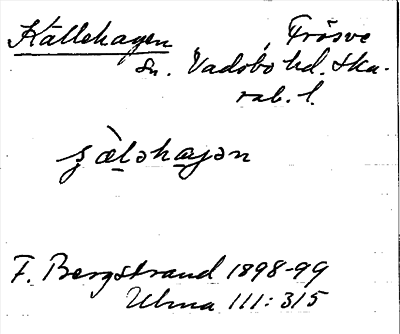 Källehagen, Frösve
sn. Vadsbo hd. Ska-
rab. l.
ʂæ̀ləhaɡən
F. Bergstrand 1898-99
Ulma 111:315